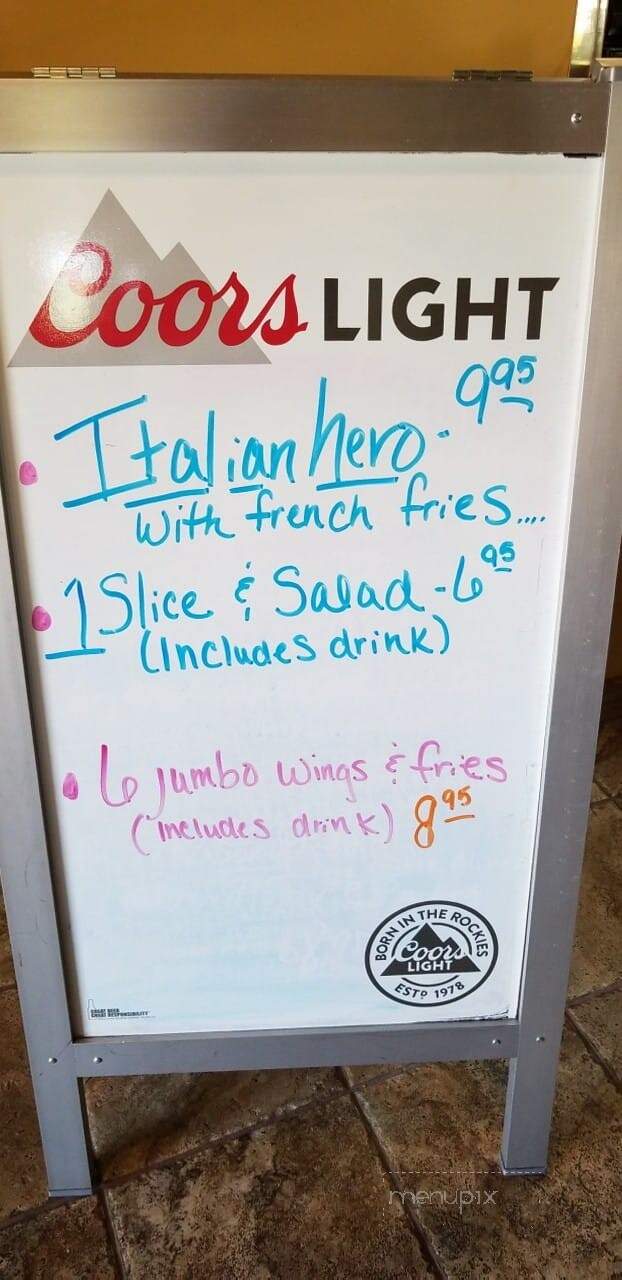 Coors LIGHT
9.95
Italian hero -
with french fries....
1 Slice & Salad - 6.95
(Includes drink)
6 Jumbo wings & fries
(includes drink) 8.95
BORN IN THE ROCKIES
Coors
LIGHT
ESTD 1978
GREAT BEER
GREAT RESPONSIBILITY
menupix